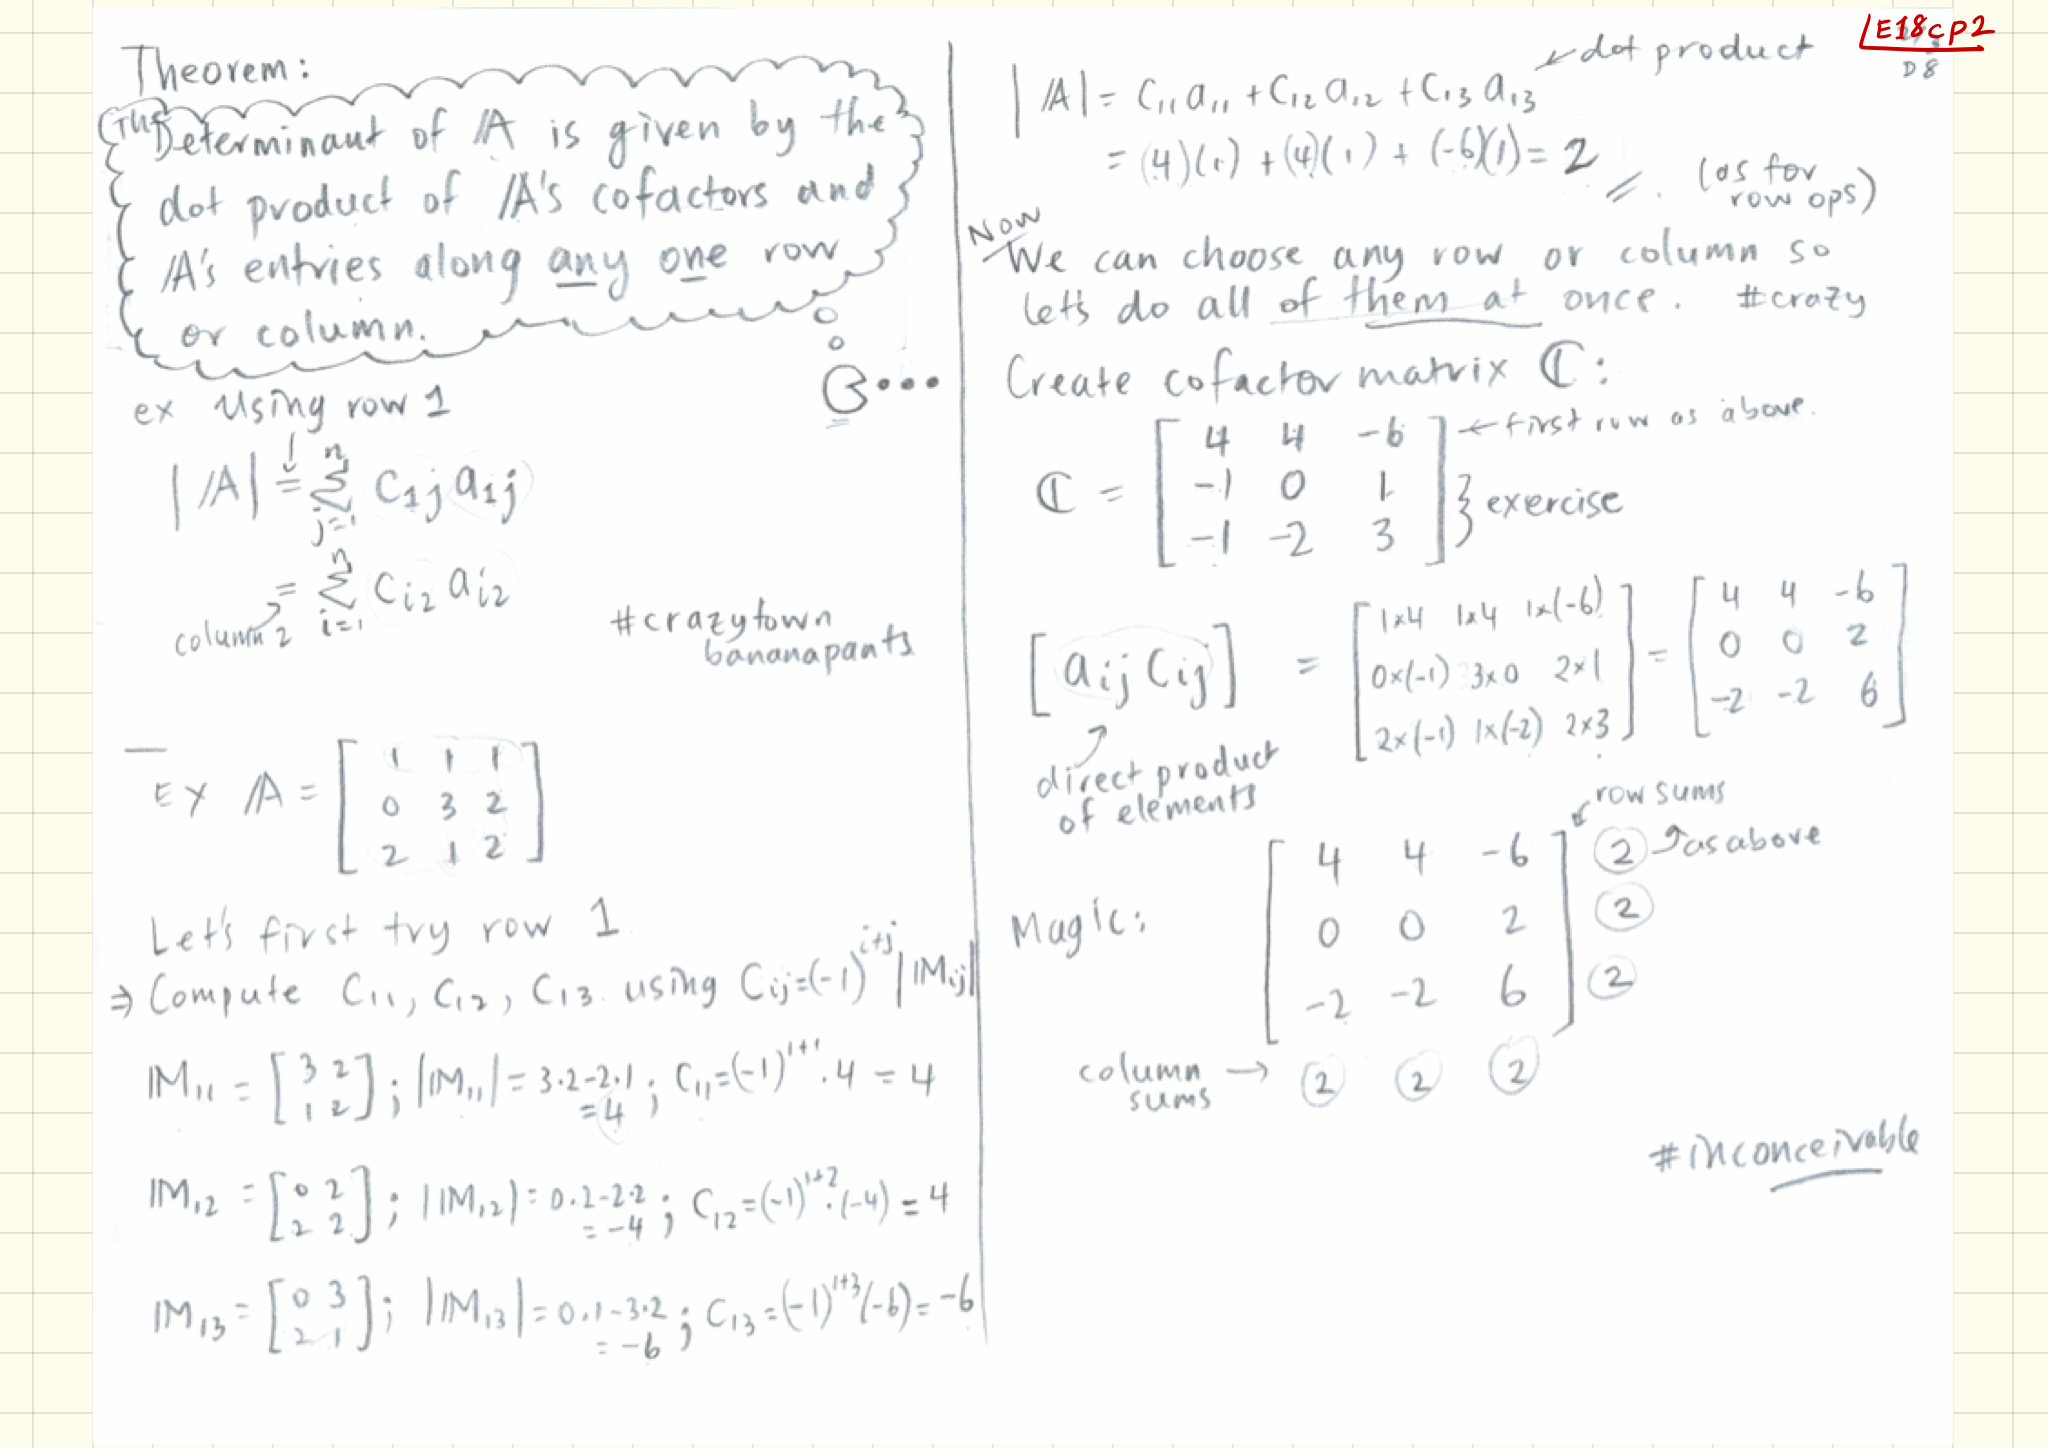 E18cp2
D8
Theorem:
The Determinant of A is given by the
dot product of A's cofactors and
A's entries along any one row
or column.
ex Using row 1
|A| = Σ_{j=1}^{n} C_{1j} a_{1j}
= Σ_{i=1}^{n} C_{i2} a_{i2}
column 2
#crazytown
bananapants
Ex A = [ 1 1 1
0 3 2
2 1 2 ]
Let's first try row 1
⇒ Compute C11, C12, C13 using Cij=(-1)^{i+j} |Mij|
M11 = [ 3 2
1 2 ]; |M11| = 3·2-2·1 = 4; C11=(-1)^{1+1}·4 = 4
M12 = [ 0 2
2 2 ]; |M12| = 0·2-2·2 = -4; C12=(-1)^{1+2}·(-4) = 4
M13 = [ 0 3
2 1 ]; |M13| = 0·1-3·2 = -6; C13=(-1)^{1+3}(-6) = -6
← dot product
|A| = C11 a11 + C12 a12 + C13 a13
= (4)(1) + (4)(1) + (-6)(1) = 2
(as for
row ops)
Now
We can choose any row or column so
let's do all of them at once. #crazy
Create cofactor matrix C:
C = [ 4 4 -6
-1 0 1
-1 -2 3 ]
← first row as above.
} exercise
[aij Cij] = [ 1x4 1x4 1x(-6)
0x(-1) 3x0 2x1
2x(-1) 1x(-2) 2x3 ] = [ 4 4 -6
0 0 2
-2 -2 6 ]
direct product
of elements
row sums
Magic: [ 4 4 -6
0 0 2
-2 -2 6 ]
2 as above
2
2
column
sums → 2 2 2
#inconceivable